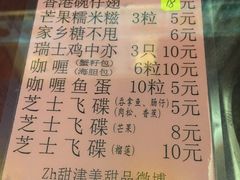 香港碗仔翅 5元
芒果糯米糍 3粒5元
家乡糖不甩 6元
瑞士鸡中亦 3只10元
咖喱(蟹籽包)(海胆包) 6粒10元
咖喱鱼蛋 10粒5元
芝士飞碟(吞拿鱼、肠仔)(肉松、香蕉) 5元
芝士飞碟(芒果) 8元
芝士飞碟(榴莲) 10元
Zh甜津美甜品微博
18